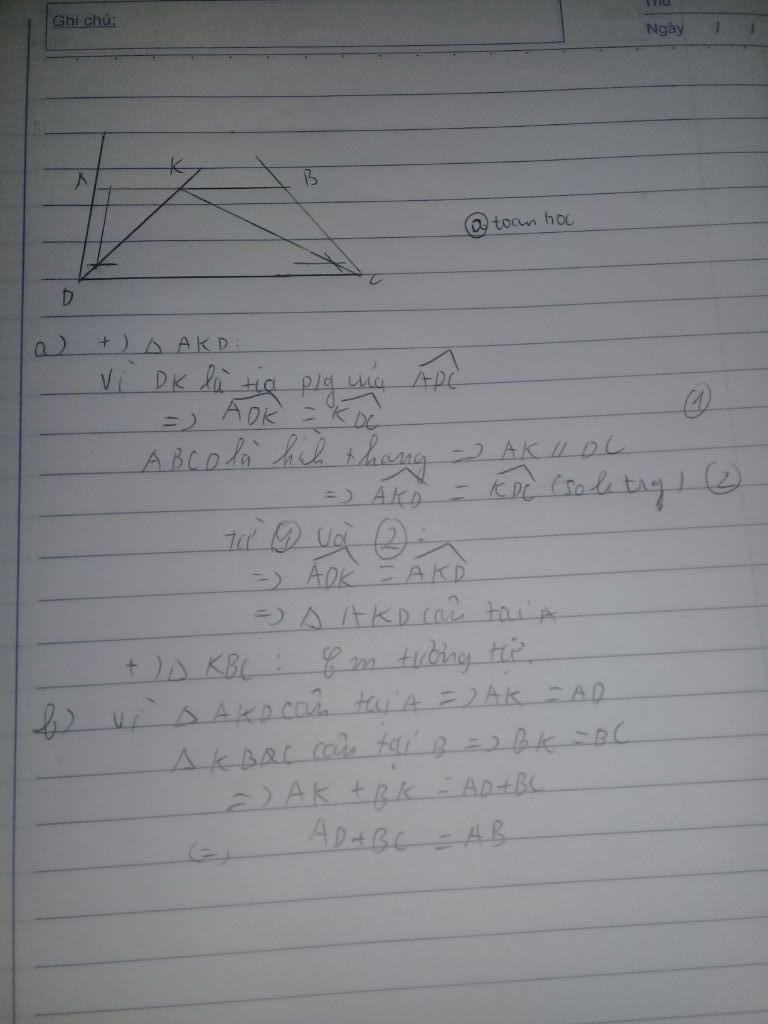 Ghi chú:
Thứ
Ngày / /
A K B
@ toan hoc
D C
a) +) Δ AKD:
Vì DK là tia p/g của ADC
=> ADK = KDC (1)
ABCD là hình thang => AK // DC
=> AKD = KDC (so le trg) (2)
từ (1) và (2):
=> ADK = AKD
=> Δ AKD cân tại A
+) Δ KBC: Cm tương tự.
b) Vì Δ AKD cân tại A => AK = AD
Δ KBC cân tại B => BK = BC
=> AK + BK = AD+BC
<=> AD+BC = AB